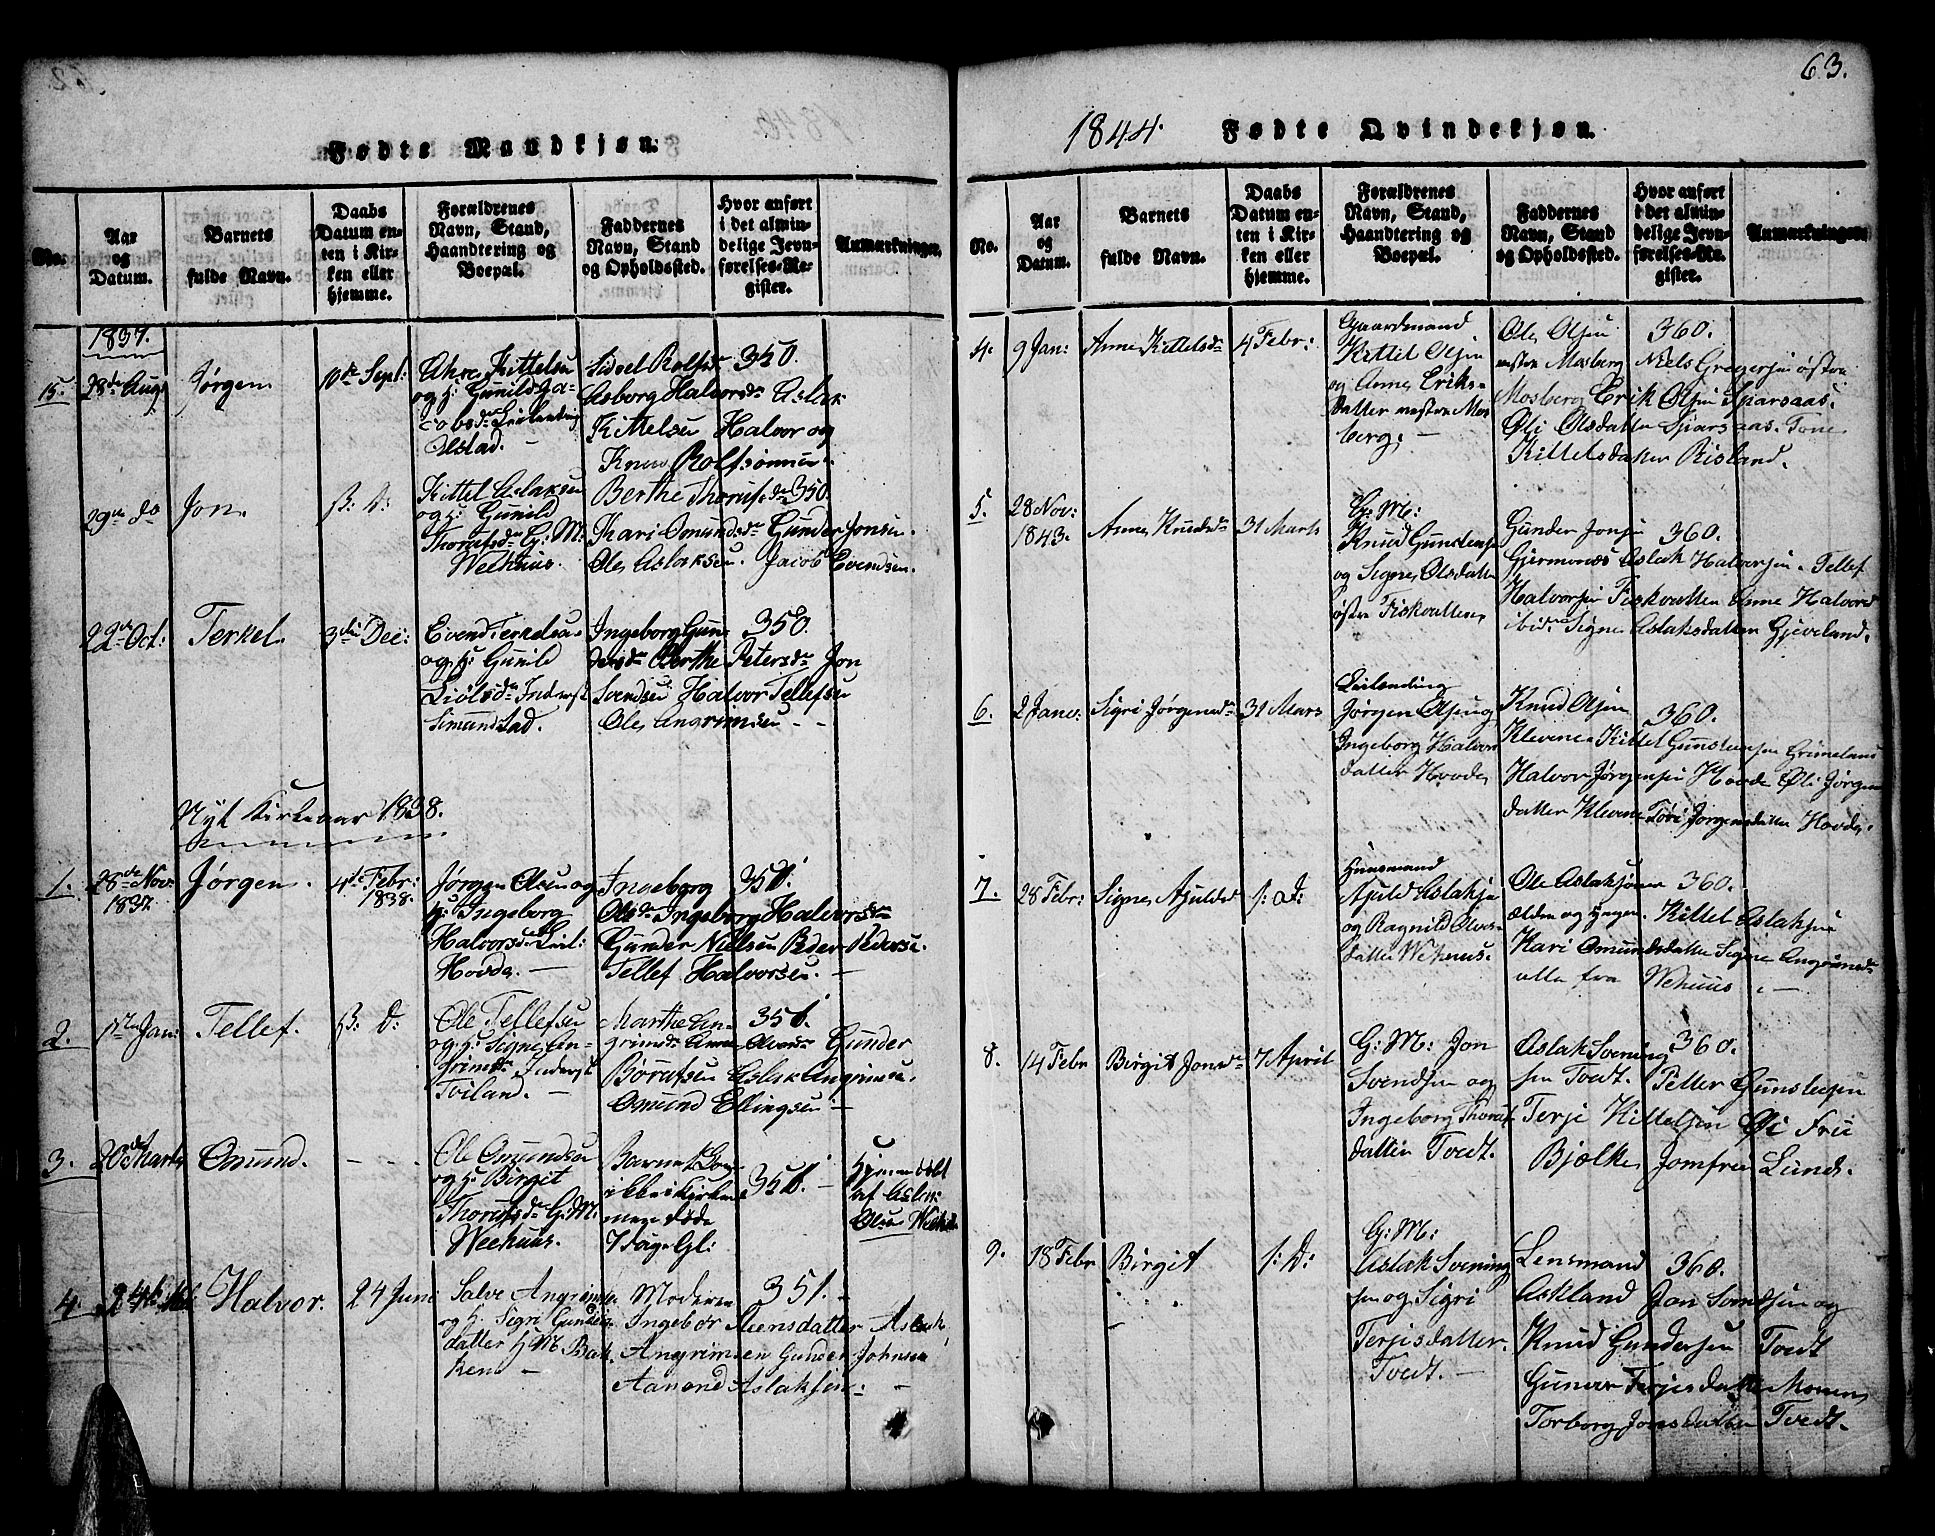 63.
Fødte Mandkjøn.
No.
Aar
og
Datum.
Barnets
fulde Navn.
Daabs
Datum en-
ten i Kir-
ken eller
hjemme.
Forældrenes
Navn, Stand,
Haandtering og
Boepæl.
Faddernes
Navn, Stand
og Opholdssted.
Hvor anført
i det almin-
delige Jevn-
førelses-Re-
gister.
Anmærkninger.
1837.
15.
28de Aug:
Jørgen
10de Sept:
Kittelsen
og h: Gunild Ja-
cobsdr
Olstad.
Sidsel Rolfsdr
Asborg Halvorsdr Aslak
Kittelsen Halvor og
Knud Rolfsønner.
350.
29de do
Jon.
s: D:
Kittel Aslaksen
og h: Gunild
Thorufsdr G: M:
Weehuus.
Berthe Thorufsdr
Kari Omundsdr Gunder Jonsen.
Ole Aslaksen. Jacob Evendsen.
350.
22de Oct:
Terkel.
3die Dec:
Evend Terkelsen
og h: Gunild
Liølsdr Inderst
Simundstad.
Ingeborg Gun-
dersdr Berthe Petersdr Jon
Svendsen Halvor Tellefsen
Ole Angrimsen - -
350.
Nyt Kirkeaar 1838.
1.
28de Nov:
1837
Jørgen.
4de Febr:
1838.
Jørgen Olsen og
h: Ingeborg
Halvorsdr Leil:
Hovde. -
Ingeborg
Olsdr Ingeborg Halvorsdr
Gunder Nielsen Peder Pedersen.
Tellef Halvorsen. -
351.
2.
1ste Jan:
Tellef.
s: D:
Ole Tellefsen
og h: Signe An-
grimsdr Inderst
Toiland. -
Marthe An-
grimsdr Anne Olsdr Gunder
Børufsen Aslak Angrimsen.
Omund Ellingsen -
351.
3.
20de Marts
Omund.
- - -
Ole Omundsen
og h: Birgit
Thorufsdr G: M.
Weehuus.
Barnet kom
ikke i Kirken
men døde
7 Dage Gl:
351. -
Hjemmedøbt
af Aslak
Olsen Weehuus
4.
Halvor.
24 Juni
Salve Angrimsen
og h: Sigri Gunders
datter H M Bak
ken -
Moderen
Ingebor Steensdatter Aslak
Angrimsen Gunder Johnsen
Aanond Aslaksen: -
351.
1844.
Fødte Qvindekjøn.
No.
Aar
og
Datum.
Barnets
fulde Navn.
Daabs
Datum en-
ten i Kir-
ken eller
hjemme.
Forældrenes
Navn, Stand,
Haandtering og
Boepæl.
Faddernes
Navn, Stand
og Opholdssted.
Hvor anført
i det almin-
delige Jevn-
førelses-Re-
gister.
Anmærkninger.
4.
9 Jan:
Anne Kittelsdr
4 Febr:
Gaardmand
Kittel Olsen
og Anne Eriks-
datter vestre Mos
berg. -
Ole Olsen
vestre Mosberg Niels Gregersen østre
Mosberg Erik Olsen Sparsaas.
Øli Olsdatter Sparsaas. Tone
Kittelsdatter Risland.
360.
5.
28 Nov:
1843.
Anne Knudsdr
31 Marts
G: M:
Knud Gunstensen
og Signe Olsdatter
østre Fiskvatten
Gunder Jonsen
Gjermonds Aslak Halvorsen. Tellef
Halvorsen Fiskvatten Anne Halvorsd
ibid. Signe Aslaksdatter Gjeveland.
360.
6.
2 Janu:
Sigri Jørgensdr
31 Mars
Leilending
Jørgen Olsen og
Ingeborg Halvors
datter Hovde
Knud Olsen
Klevene Kittel Gunstensen Grimeland
Halvor Jørgensen Hovde Øli Jørgens
datter Klevene Tøri Jørgensdatter Hovde.
360.
7.
28 Febr:
Signe Ajuldsd
s: D:
Huusmand
Ajuld Aslaksen
og Ragnild Olves-
datter Wehuus.
Ole Aslaksønner
ælden og yngen. Kittel Aslaksen
Kari Omundsdatter Signe Angrimsdr
alle fra Wehuus. -
360.
8.
14 Febr
Birgit Jonsdr
7 April
G: M: Jon
Svendsen og
Ingeborg Thorufs
datter Tvedt.
Aslak Svening
sen Tvedt. Petter Gunstensen
Terje Kittelsen Øi Frue
Bjelke Jomfru Lunds.
360.
9.
18 Febr
Birgit
s: D:
G: M:
Aslak Svening
sen og Sigri
Terjesdatter.
Tvedt. -
Lensmand
Askland Jon Svendsen og
Knud Gundersen Tvedt
Gunvor Terjesdatter Monen
Torborg Jonsdatter Tvedt.
360.